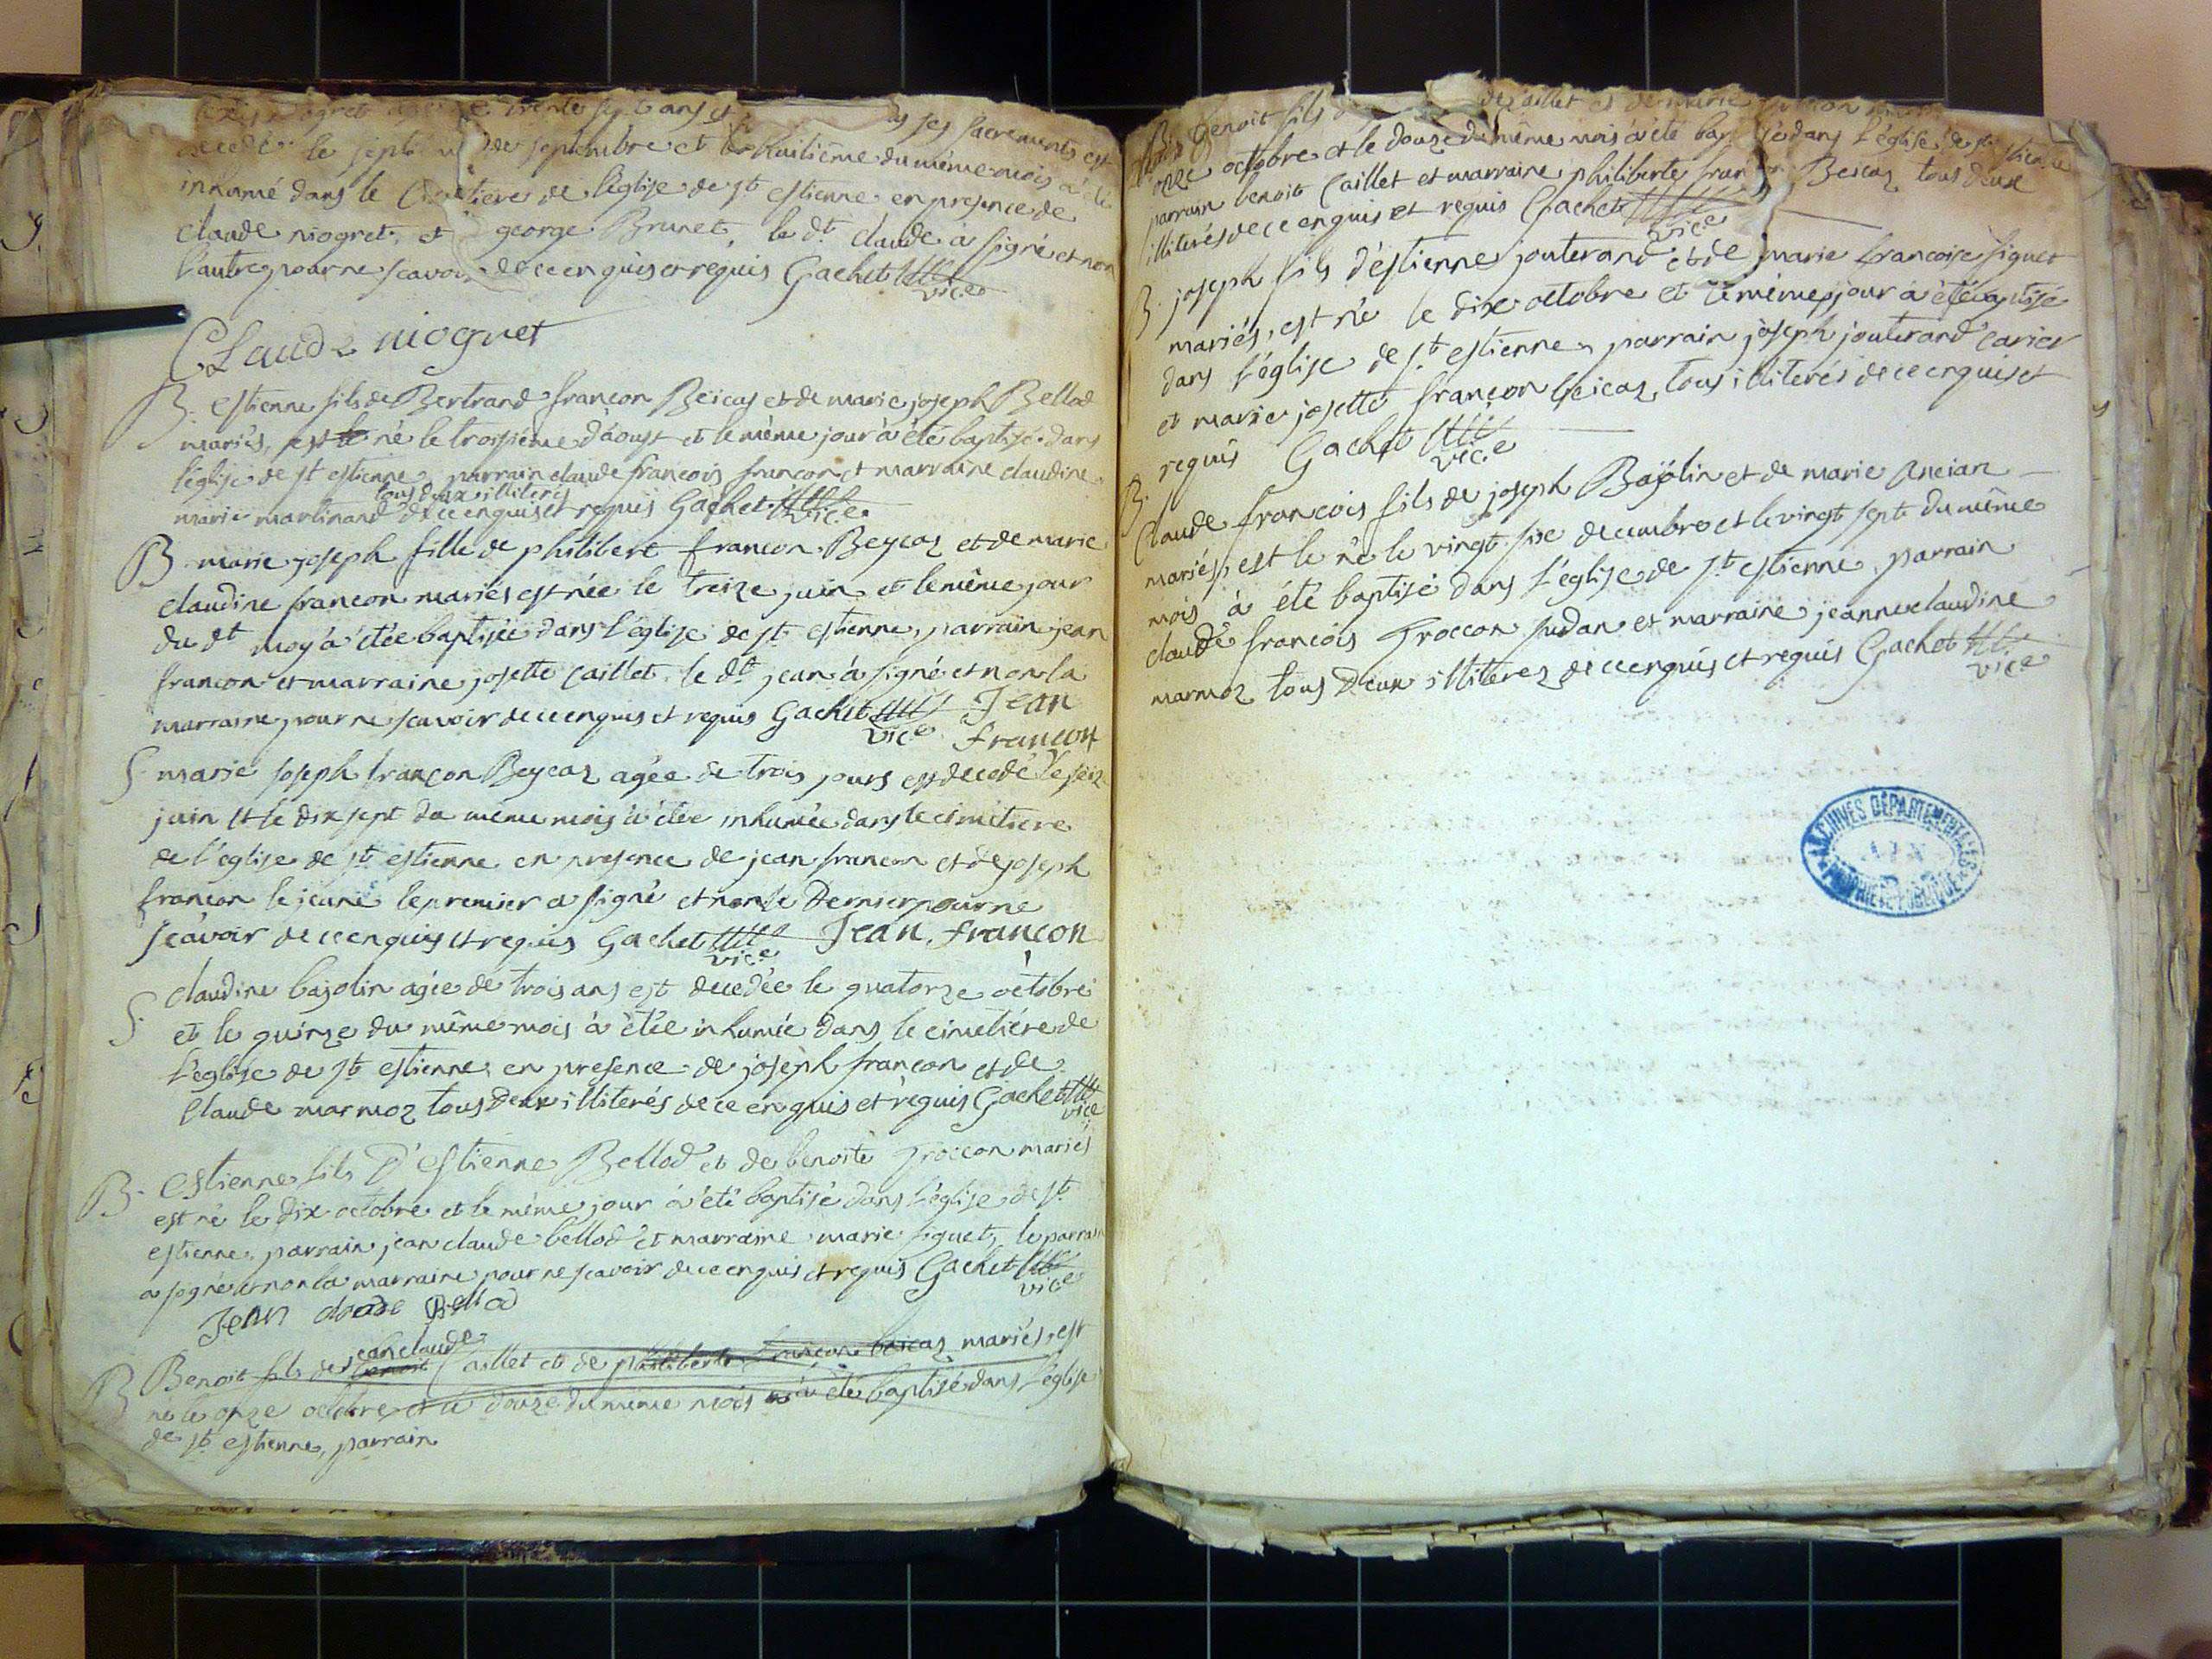 niogret trente sept ans et ses sacrements est
decedé le septi de septembre et le huitiême du même mois à été
inhumé dans le Cimetiere de l'église de st estienne en presence de
claude niogret, et george Brunet, le dt claude à signé et non
l'autre pour ne scavoir de ce enquis et requis Gachet
vice
CLaude niogret
B. estienne fils de Bertrand françon Beicaz et de marie joseph Bellod
mariés, est le né le troisiéme d'áoust et le même jour à été baptisé dans
l'église de st estienne parrain claude francois françon et marraine claudine
tous deux illiterés
marie martinand de ce enquis et requis Gachet
vice
B. marie joseph fille de philibert francon Beycaz et de marie
claudine francon mariés est née le treize juin et le même jour
du dt moy à étée baptisée dans l'église de st estienne, parrain jean
francon et marraine josette Caillet. le dt jean à signé et non la
marraine pour ne scavoir de ce enquis et requis Gachet Jean
vice françon
S. marie joseph françon Beycaz agée de trois jours est decedé le seiz
juin et le dix sept du même mois à étée inhumée dans le cimetiere
de l'église de st estienne en presence de jean francon et de joseph
françon le jeune le premier a signé et non le Dernier pour ne
scavoir de ce enquis et requis Gachet Jean françon
vice
S. claudine bajolin agée de trois ans est decedée le quatorze octobre
et le quinze du même mois à étée inhumée dans le cimetiére de
l'église de st estienne en presence de joseph françon et de
Claude marmoz tous deux illiterés de ce enquis et requis Gachet
vice
B. Estienne fils D'Estienne Bellod et de benoite Troccon mariés
est né le dix octobre et le même jour à été baptisé dans l'église de st
estienne. parrain jean claude bellod et marraine marie siguet, le parrain
a signé et non la marraine pour ne scavoir de ce enquis et requis Gachet
vice
Jean cloude Bellod
jean claude
B Benoit fils de benoit Caillet et de philiberte françon beicaz mariés, est
né le onze octobre et le douze du même mois à été baptisé dans l'église
de st estienne, parrain
Benoit fils de Caillet et de marie
onze octobre et le douze du même mois à été bap dans l'église de st estienne
parrain benoit Caillet et marraine philiberte fran Beicaz tous deux
illiterés de ce enquis et requis Gachet
vice
B. joseph fils d'estienne jouterand et de marie francoise siguet
mariés, est né le dix octobre et le même jour à été baptisé
dans l'église de st estienne, parrain joseph jouterand carier
et marie josette françon beicaz, tous illiterés de ce enquis et
requis Gachet
vice
B. Claude francois fils de joseph Bajolin et de marie Ancian
mariés, est le né le vingt six decembre et le vingt sept du même
mois à été baptisé dans l'église de st estienne, parrain
claude francois Troccon Judan et marraine jeanne claudine
marmoz tous Deux illiterez de ce enquis et requis Gachet
vice
ARCHIVES DÉPARTEMENTALES
AIN
PROPRIÉTÉ PUBLIQUE